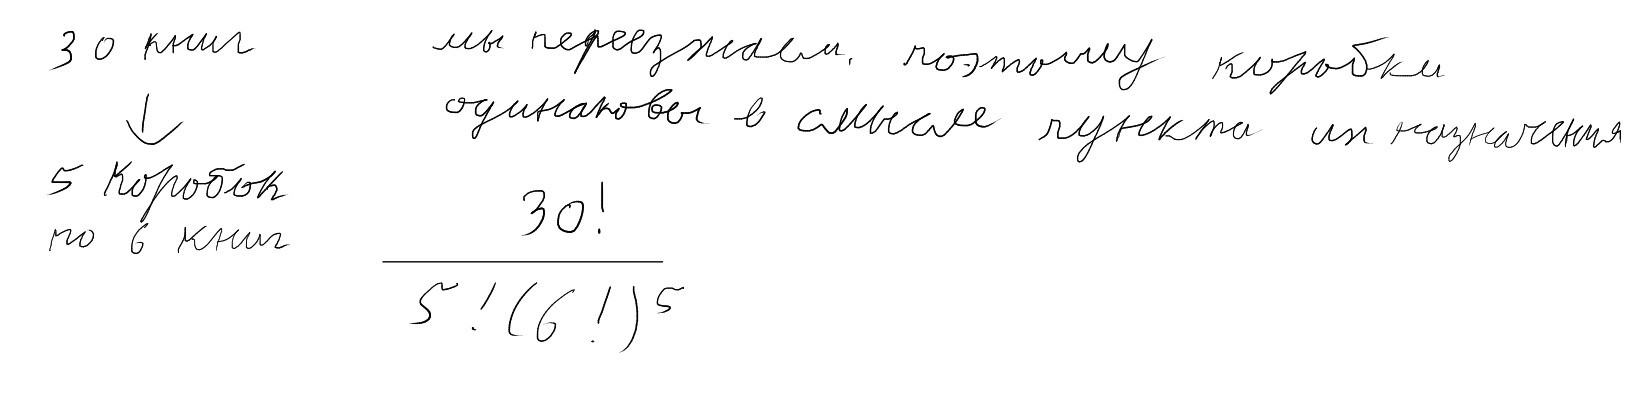 30 книг
↓
5 Коробок
по 6 книг
мы переезжаем, поэтому коробки
одинаковы в смысле пункта их назначения
30!
5!(6!)^5